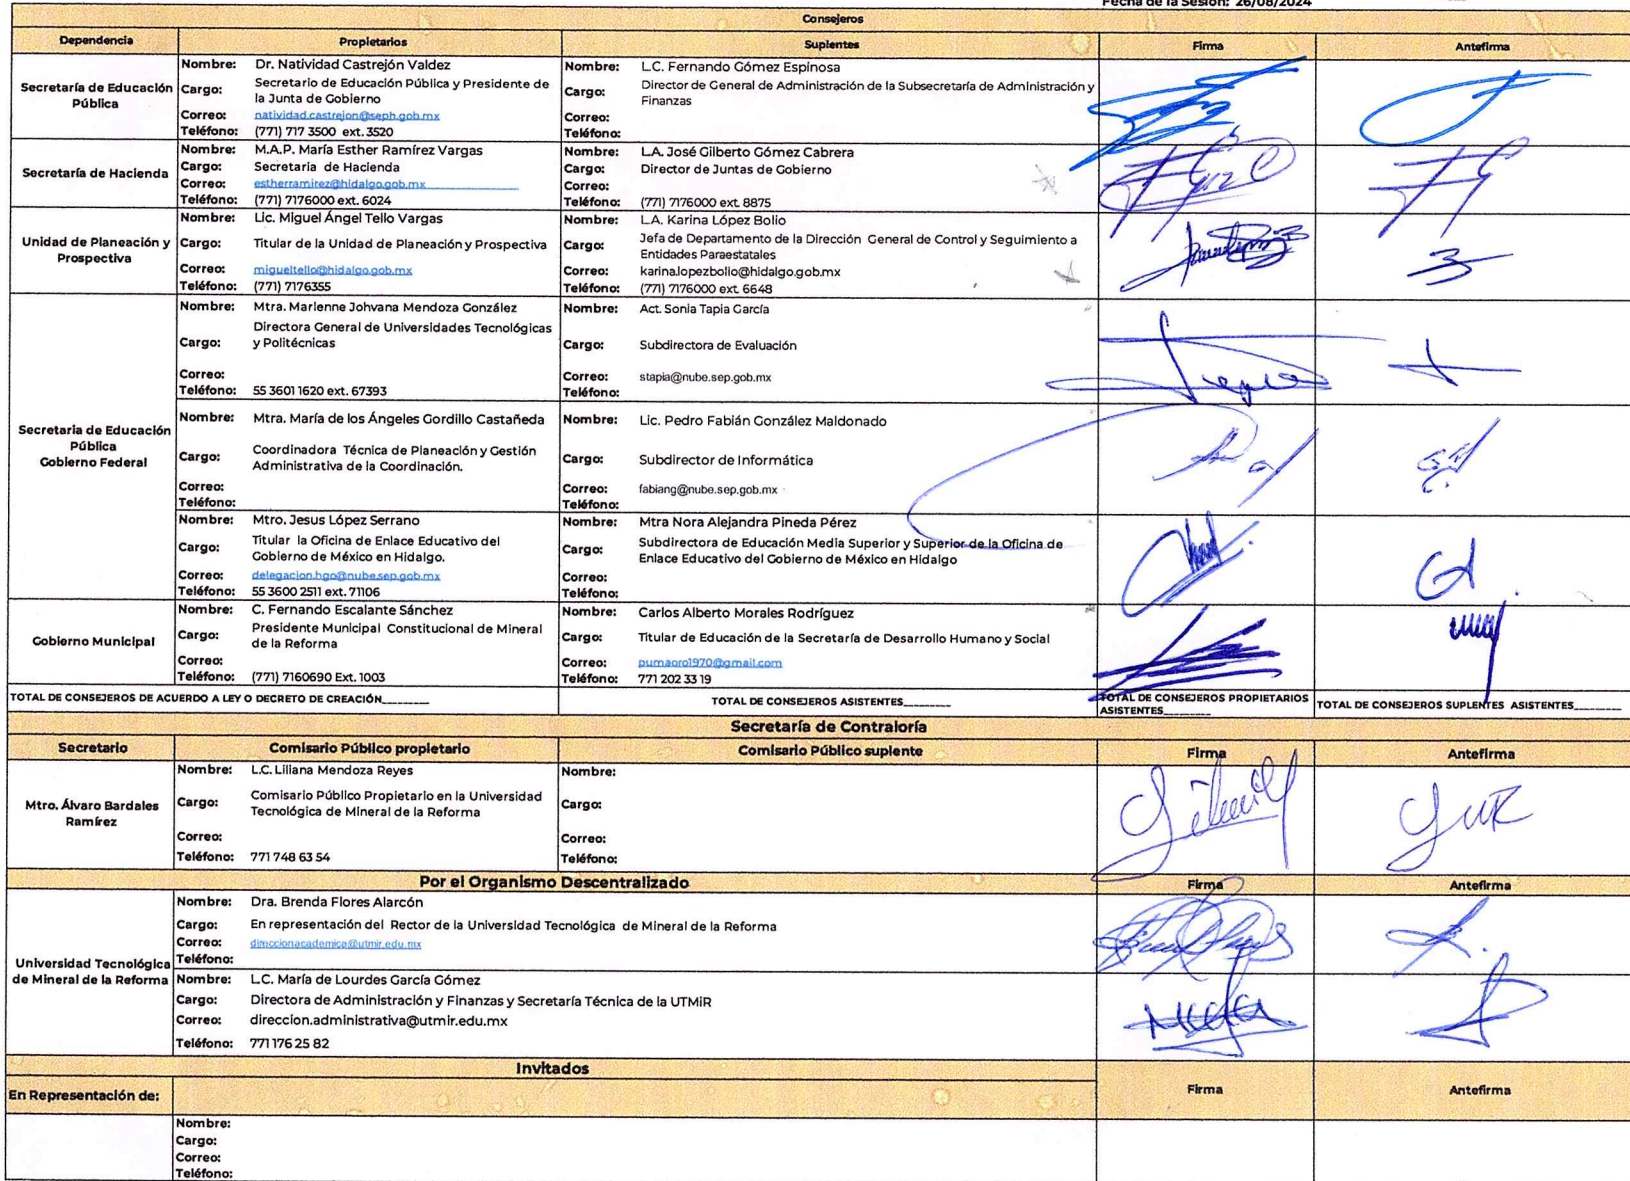 Fecha de la Sesión: 26/08/2024
Consejeros
Dependencia Propietarios Suplentes Firma Antefirma
Secretaría de Educación Pública
Nombre: Dr. Natividad Castrejón Valdez
Cargo: Secretario de Educación Pública y Presidente de
la Junta de Gobierno
Correo: natividad.castrejon@seph.gob.mx
Teléfono: (771) 717 3500 ext. 3520
Nombre: L.C. Fernando Gómez Espinosa
Cargo: Director de General de Administración de la Subsecretaría de Administración y
Finanzas
Correo:
Teléfono:
Secretaría de Hacienda
Nombre: M.A.P. María Esther Ramírez Vargas
Cargo: Secretaria de Hacienda
Correo: estherramirez@hidalgo.gob.mx
Teléfono: (771) 7176000 ext. 6024
Nombre: L.A. José Gilberto Gómez Cabrera
Cargo: Director de Juntas de Gobierno
Correo:
Teléfono: (771) 7176000 ext. 8875
Unidad de Planeación y
Prospectiva
Nombre: Lic. Miguel Ángel Tello Vargas
Cargo: Titular de la Unidad de Planeación y Prospectiva
Correo: migueltello@hidalgo.gob.mx
Teléfono: (771) 7176355
Nombre: L.A. Karina López Bolio
Cargo: Jefa de Departamento de la Dirección General de Control y Seguimiento a
Entidades Paraestatales
Correo: karina.lopezbolio@hidalgo.gob.mx
Teléfono: (771) 7176000 ext. 6648
Secretaria de Educación
Pública
Gobierno Federal
Nombre: Mtra. Marlenne Johvana Mendoza González
Cargo: Directora General de Universidades Tecnológicas
y Politécnicas
Correo:
Teléfono: 55 3601 1620 ext. 67393
Nombre: Act. Sonia Tapia García
Cargo: Subdirectora de Evaluación
Correo: stapia@nube.sep.gob.mx
Teléfono:
Nombre: Mtra. María de los Ángeles Gordillo Castañeda
Cargo: Coordinadora Técnica de Planeación y Gestión
Administrativa de la Coordinación.
Correo:
Teléfono:
Nombre: Lic. Pedro Fabián González Maldonado
Cargo: Subdirector de Informática
Correo: fabiang@nube.sep.gob.mx
Teléfono:
Nombre: Mtro. Jesus López Serrano
Cargo: Titular la Oficina de Enlace Educativo del
Gobierno de México en Hidalgo.
Correo: delegacion.hgo@nube.sep.gob.mx
Teléfono: 55 3600 2511 ext. 71106
Nombre: Mtra Nora Alejandra Pineda Pérez
Cargo: Subdirectora de Educación Media Superior y Superior de la Oficina de
Enlace Educativo del Gobierno de México en Hidalgo
Correo:
Teléfono:
Gobierno Municipal
Nombre: C. Fernando Escalante Sánchez
Cargo: Presidente Municipal Constitucional de Mineral
de la Reforma
Correo:
Teléfono: (771) 7160690 Ext. 1003
Nombre: Carlos Alberto Morales Rodríguez
Cargo: Titular de Educación de la Secretaría de Desarrollo Humano y Social
Correo: pumaoro1970@gmail.com
Teléfono: 771 202 33 19
TOTAL DE CONSEJEROS DE ACUERDO A LEY O DECRETO DE CREACIÓN________ TOTAL DE CONSEJEROS ASISTENTES________ TOTAL DE CONSEJEROS PROPIETARIOS
ASISTENTES________ TOTAL DE CONSEJEROS SUPLENTES ASISTENTES________
Secretaría de Contraloría
Secretario Comisario Público propietario Comisario Público suplente Firma Antefirma
Mtro. Álvaro Bardales
Ramírez
Nombre: L.C. Liliana Mendoza Reyes
Cargo: Comisario Público Propietario en la Universidad
Tecnológica de Mineral de la Reforma
Correo:
Teléfono: 771 748 63 54
Nombre:
Cargo:
Correo:
Teléfono:
Por el Organismo Descentralizado Firma Antefirma
Universidad Tecnológica
de Mineral de la Reforma
Nombre: Dra. Brenda Flores Alarcón
Cargo: En representación del Rector de la Universidad Tecnológica de Mineral de la Reforma
Correo: direccionacademica@utmir.edu.mx
Teléfono:
Nombre: L.C. María de Lourdes García Gómez
Cargo: Directora de Administración y Finanzas y Secretaría Técnica de la UTMiR
Correo: direccion.administrativa@utmir.edu.mx
Teléfono: 771 176 25 82
Invitados
En Representación de: Firma Antefirma
Nombre:
Cargo:
Correo:
Teléfono: